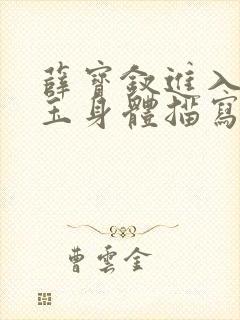 薛寶釵進入
玉身體描寫
曹雲金